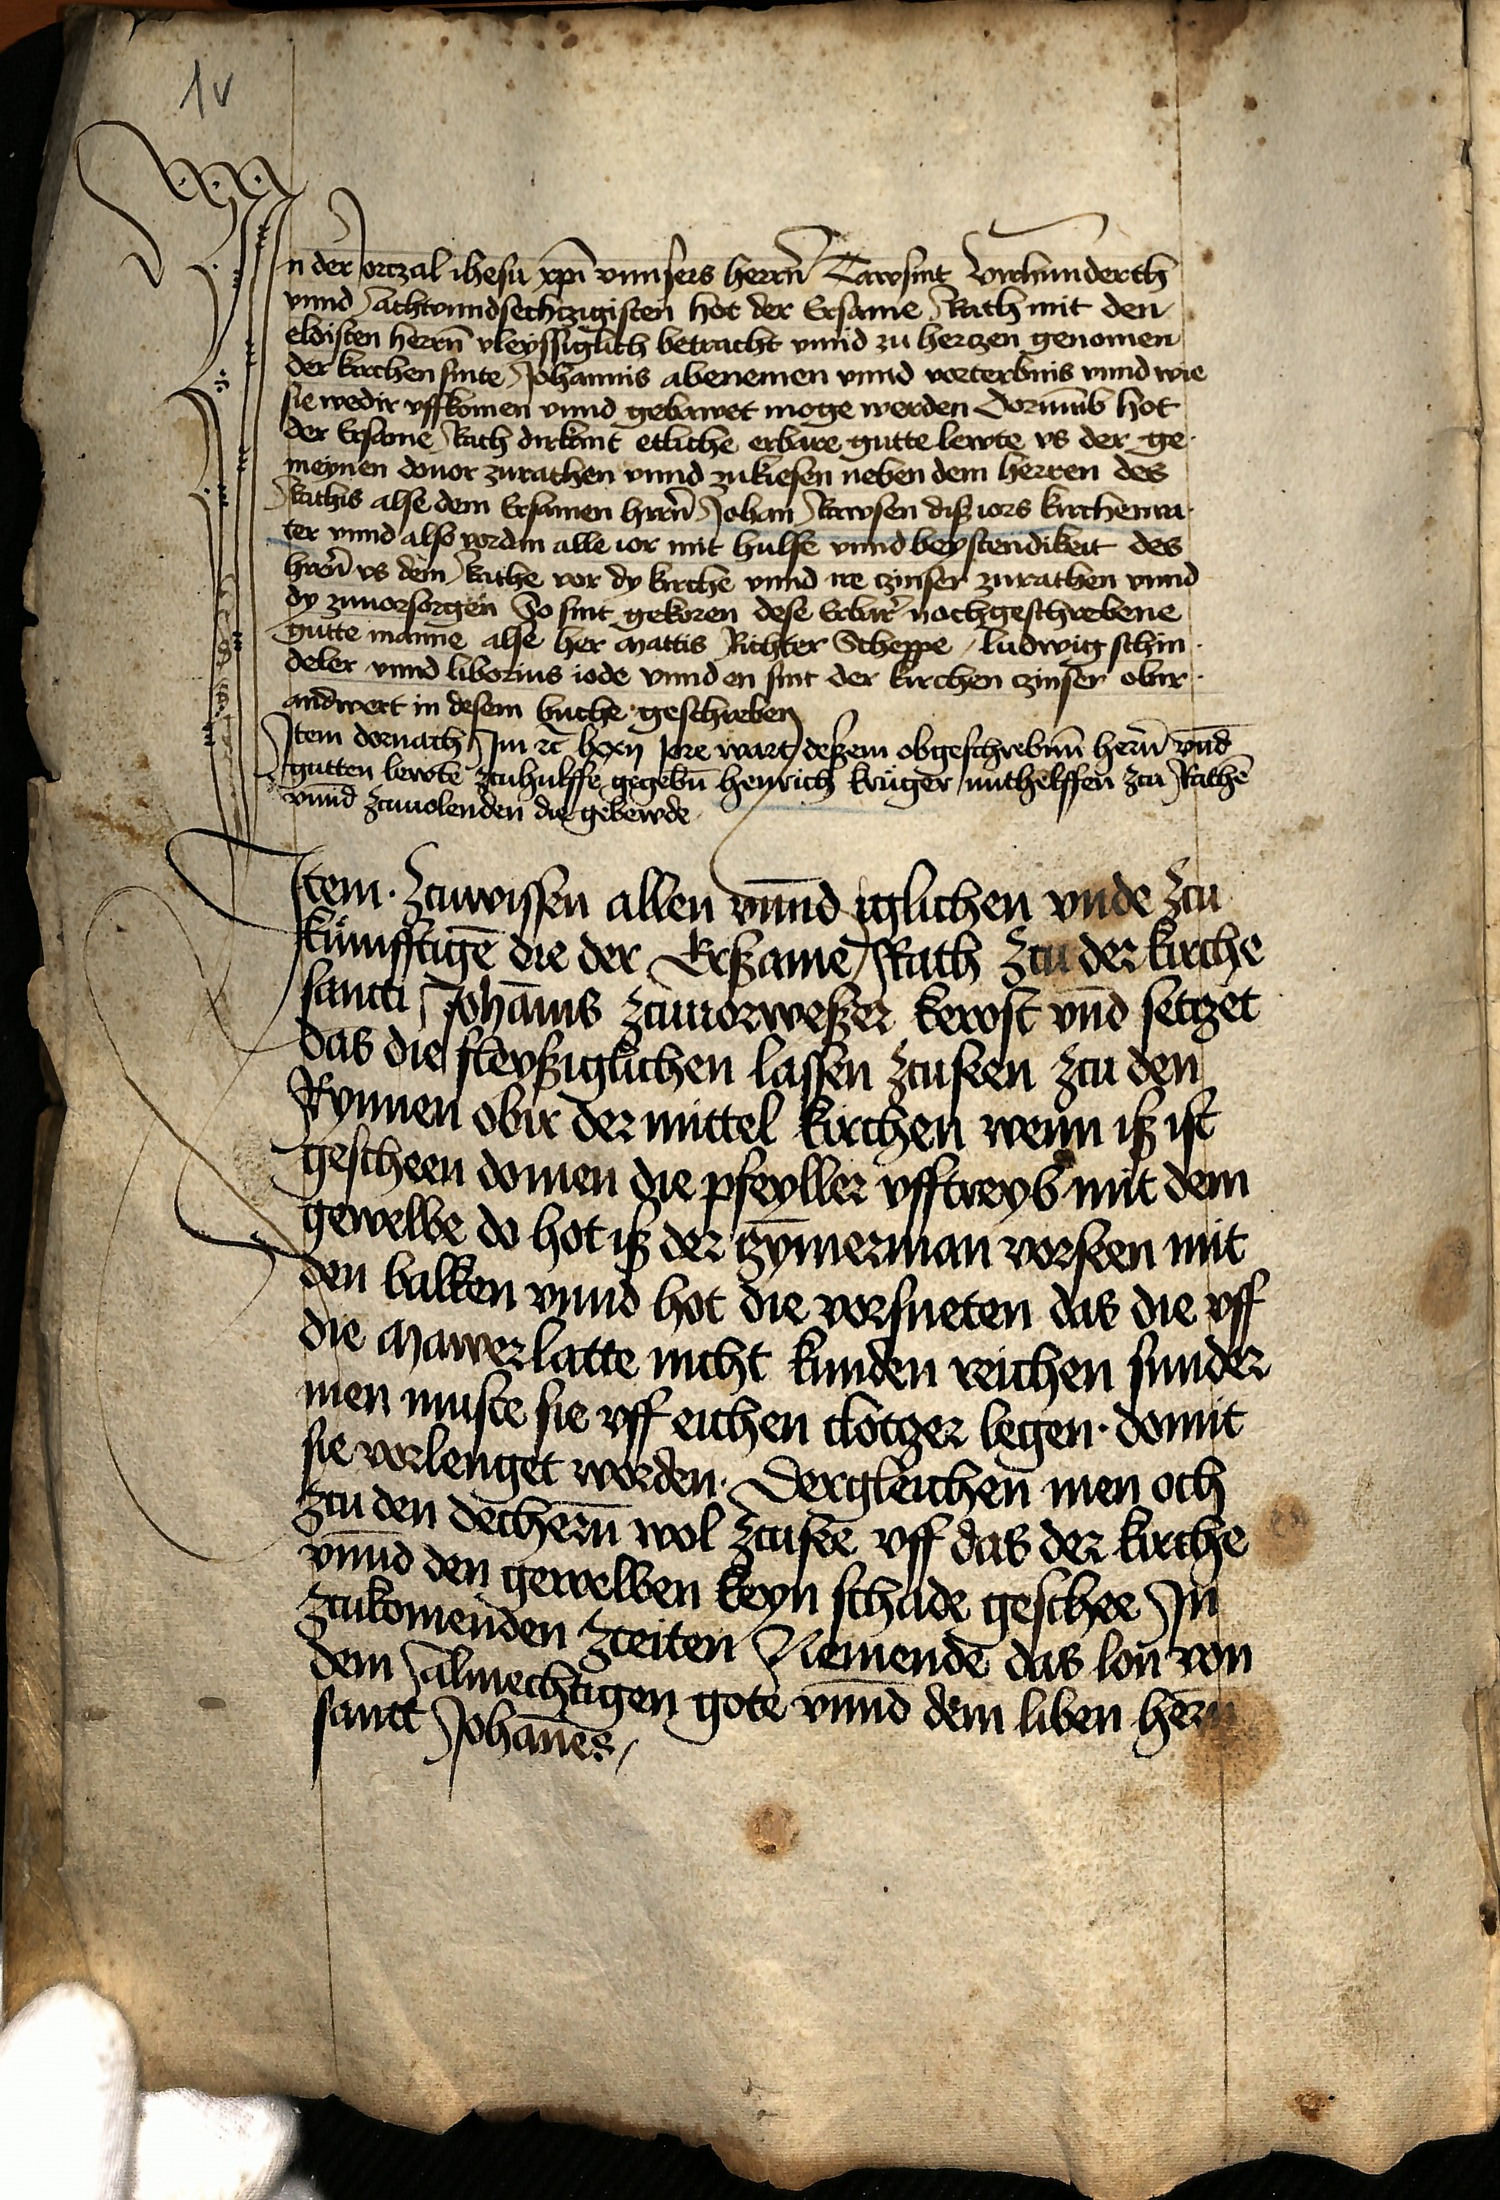 1v
In der Jorczal ihesu xpi vnnsers herrn Tawsint Virhunderth
vnnd Achtvnndsechtzigisten hot der Ersame Rath mit den
eldisten herrn vleyssiglich betracht vnnd zu hertzen genomen
der kirchen sinte Johannis abenemen vnnd vorterbnis vnnd wie
sie wedir vffkomen vnnd gebawet moge werden Dorumb hot
der Ersame Rath dirkant etliche erbare gutte lewte vs der ge
meynen dovor zurathen vnnd zukiesen neben dem herren des
Rathis alse dem Ersamen hern Johan diß iors kirchenva
ter vnnd also vordan alle ior mit hulfe vnnd beystendikeit des
hern vs dem Rathe vor dy kirche vnnd ire czinser zurathen vnnd
dy zuuorsorgen So sint gekoren dese Erbar nochgeschrebene
gutte manne alse her Mattis Richter Scheppe / ludwig schin
deler vnnd liborius iode vnnd en sint der kirchen czinser obir
andwert in desem buche geschreben
Item dornach Im lxxij Jore wart deßem obgeschrebnn hern vnd
gutten lewte zcuhulffe gegebn henrich krüger mithelffen zcu Rathe
vnnd zcuuolenden die gebewde
Item zcuwissen allen vnnd iglichen vnde zcu
kumfftige die der Erßame Rath zcu der kirche
sancti Johanis zcuuorweßer kewst vnd setzet
das die fleyßiglichen lassen zcuseen zcu den
Rynnen obir der mittel kirchen wenn iß ist
gescheen domen die pfeyller vfftreyb mit dem
gewelbe do hot iß der zymerman vorseen mit
den balken vnnd hot die vorsneten das die vff
die Mawerlatte nicht kunden reichen sunder
men muste sie vff eichen clotzer legen domit
sie vorlenget worden. Dergleichen men och
zcu den dechern wol zcusee vff das der kirche
vnnd den gewelben keyn schade geschee In
zcukomenden zceiten Nemende das lon von
dem Almechtigen gote vnnd dem liben hern
sanct Johanes